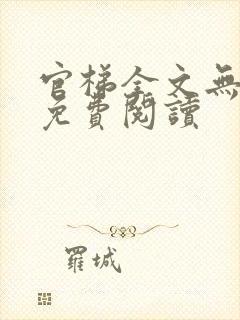 官梯全文無
免費閱讀
羅城